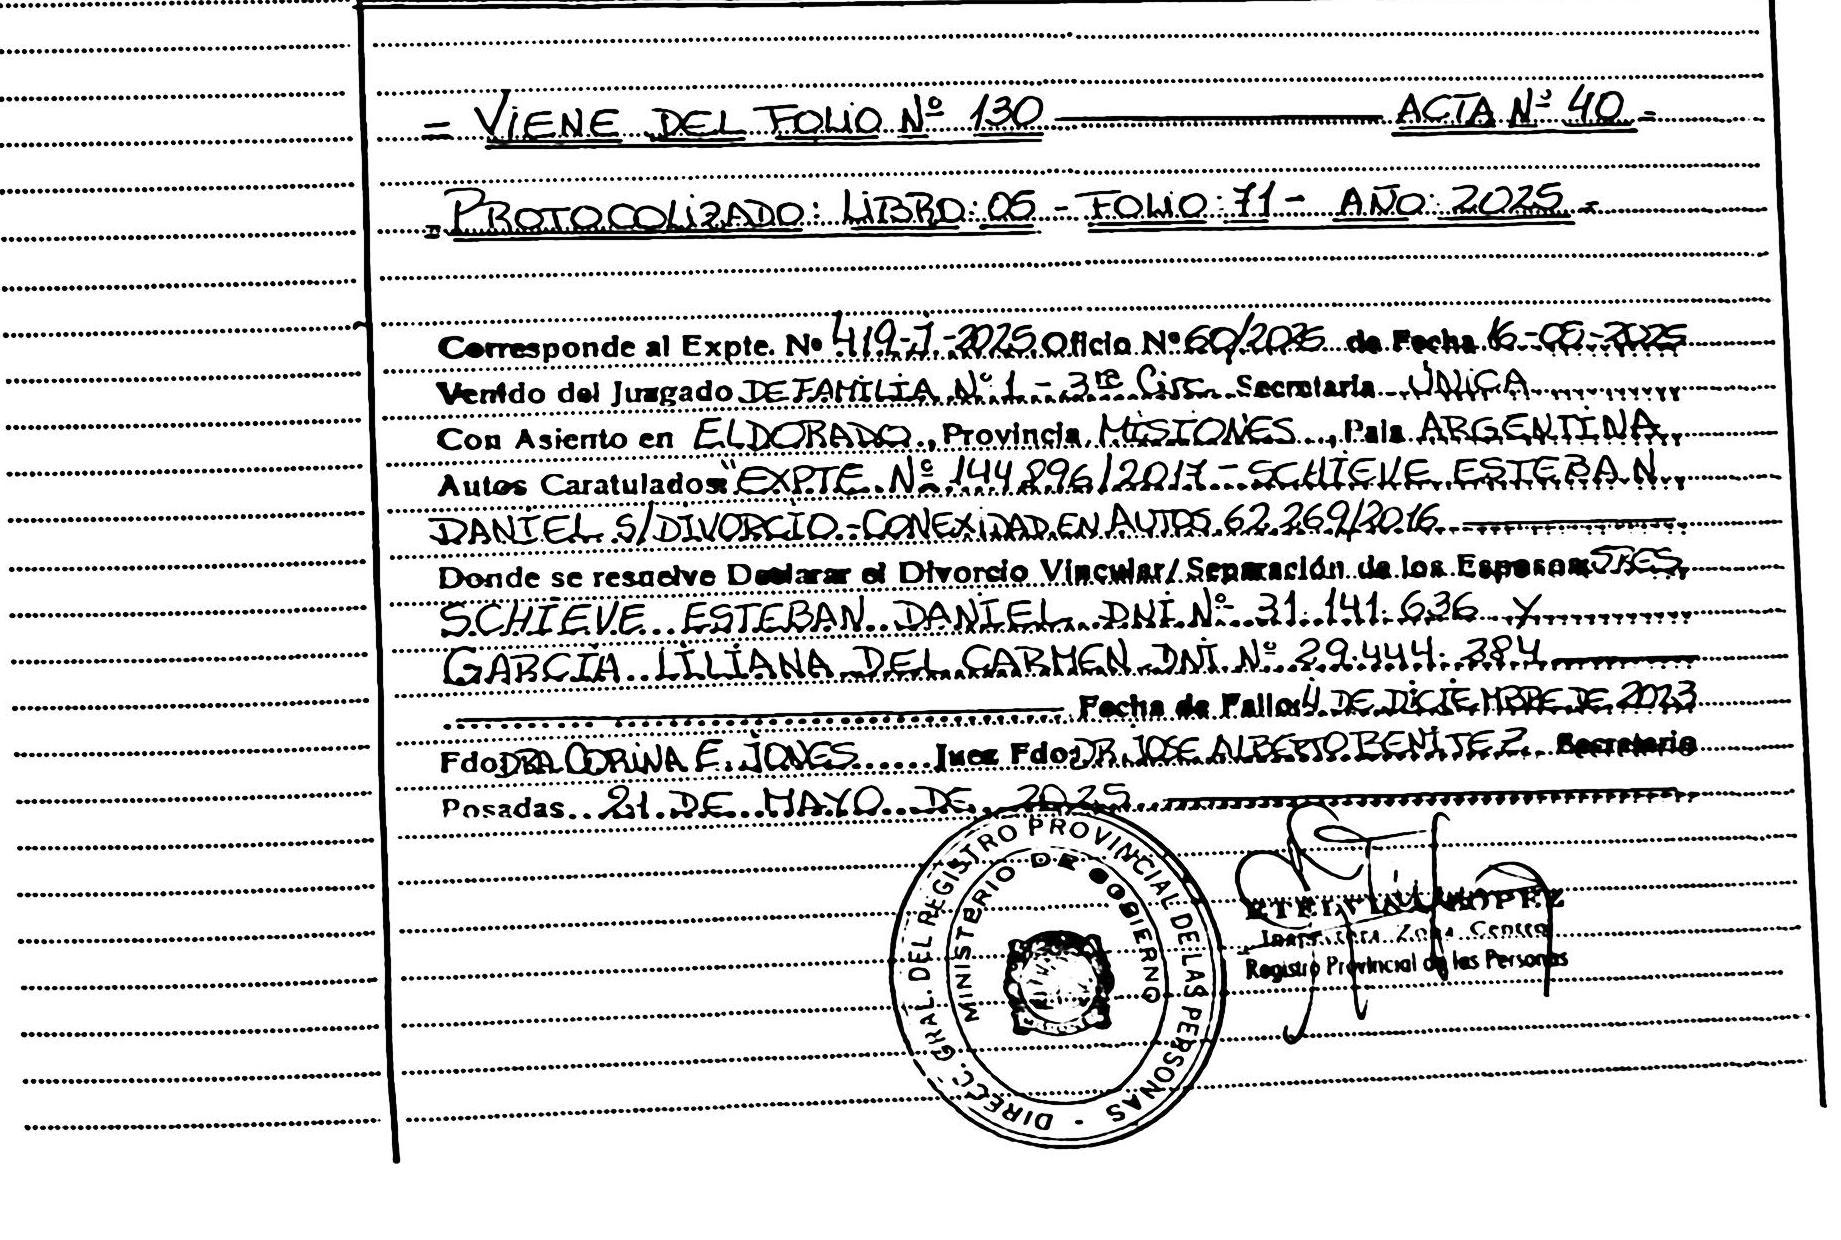 = VIENE DEL FOLIO Nº 130 ACTA Nº 40 =
= PROTOCOLIZADO: LIBRO: 05 - FOLIO: 71 - AÑO: 2025 =
Corresponde al Expte. Nº 419-J-2025 Oficio Nº 60/2025 de Fecha 16-05-2025
Venido del Juzgado DE FAMILIA Nº 1 - 3ra Circ. Secretaria UNICA
Con Asiento en ELDORADO, Provincia MISIONES, Pais ARGENTINA
Autos Caratulados: "EXPTE. Nº 144.896/2017 - SCHIEVE ESTEBAN
DANIEL S/DIVORCIO - CONEXIDAD EN AUTOS 62.269/2016
Donde se resuelve Declarar el Divorcio Vincular/Separación de los Esposos: SRES
SCHIEVE ESTEBAN DANIEL DNI Nº 31.141.636 y
GARCIA LILIANA DEL CARMEN DNI Nº 29.444.284
Fecha de Fallo: 4 DE DICIEMBRE DE 2023
Fdo: DRA CORINA E. JONES Juez Fdo: DR JOSE ALBERTO BENITEZ Secretario
Posadas 21 DE MAYO DE 2025
DIREC. GRAL. DEL REGISTRO PROVINCIAL DE LAS PERSONAS -
MINISTERIO DE GOBIERNO
LOPEZ
Zona Centro
Registro Provincial de las Personas